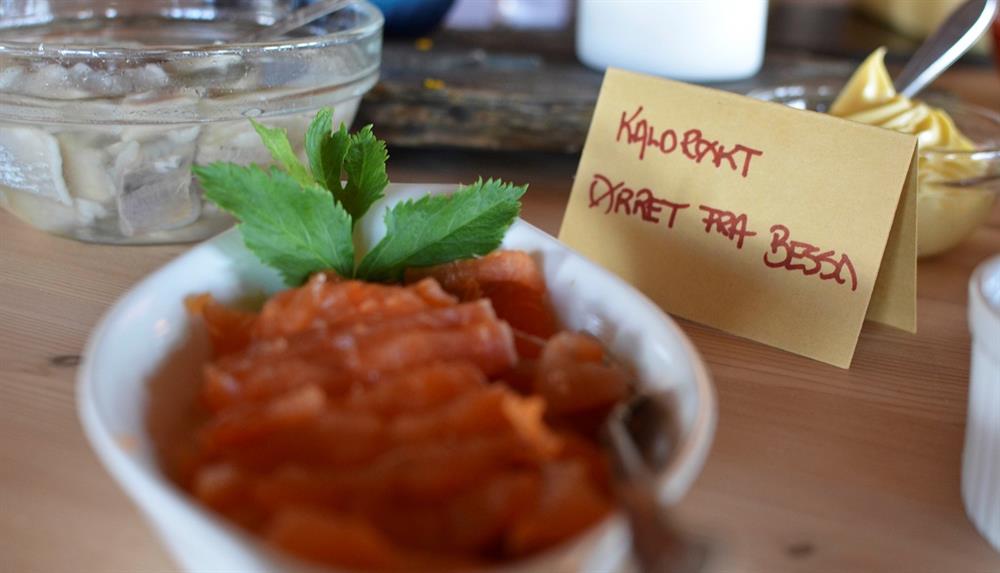 KALDRØKT
ØRRET FRA BESSA